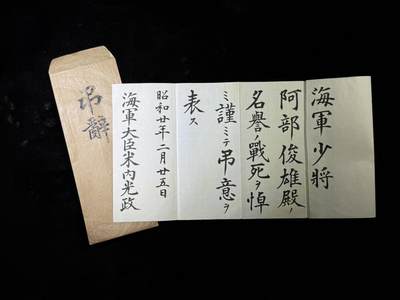 海軍少將
阿部俊雄殿ノ
名譽ノ戰死ヲ悼
ミ謹ミテ吊意ヲ
表ス
昭和廿年二月廿五日
海軍大臣米内光政
吊辭